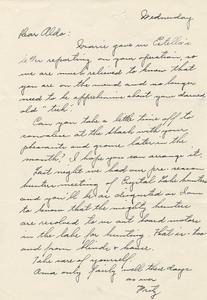 Wednesday
Dear Aldo:
Marie gave us Estella's
letter reporting on your operation, so
we are much relieved to know that
you are on the mend and no longer
need to be apprehensive about your darned
old "tick."
Can you take a little time off to
convalesce at the Shack with your
pheasants and grouse later in the
month? I hope you can arrange it.
Last night we had our pre-season
hunters meeting of Crystal Lake hunters
and you'll be as delighted as I am
to know that the mighty hunters
are resolved to use not board motors
in the lake for hunting. That is - to
and from blinds & house.
Take care of yourself.
Anna only fairly well these days
as ever
Fritz